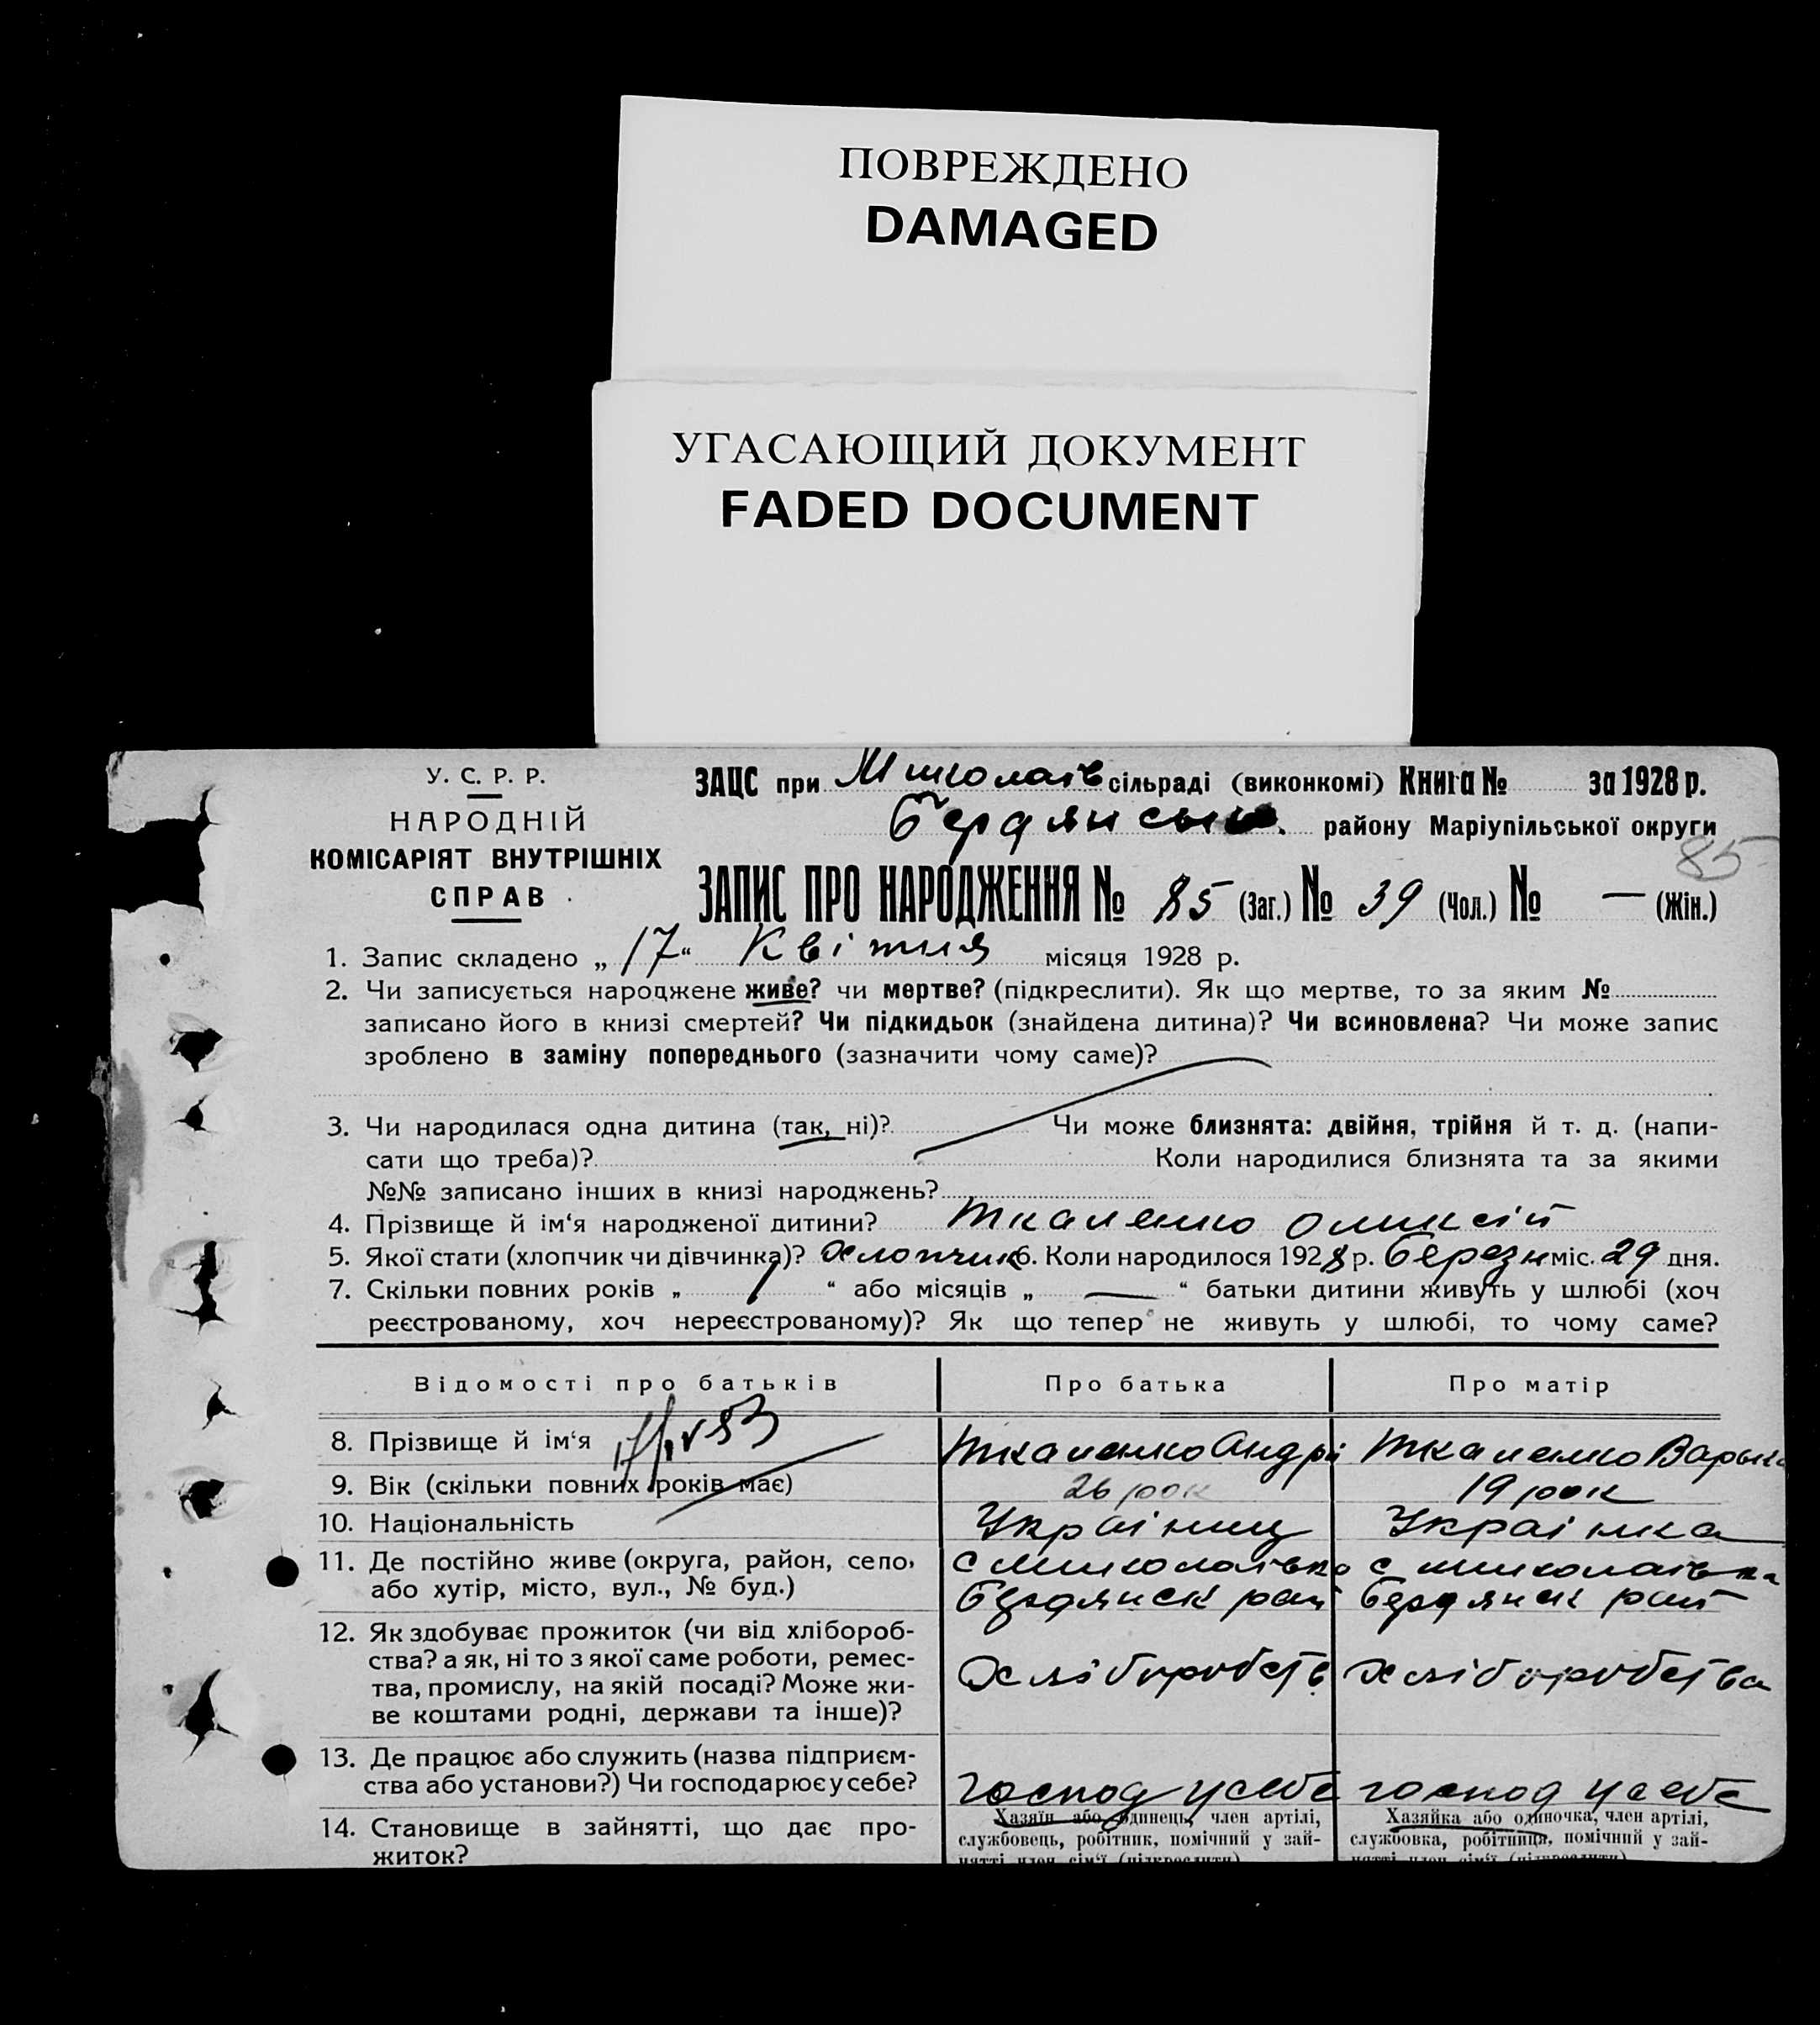 ПОВРЕЖДЕНО
DAMAGED
УГАСАЮЩИЙ ДОКУМЕНТ
FADED DOCUMENT
У. С. Р. Р.
НАРОДНІЙ
КОМІСАРІЯТ ВНУТРІШНІХ
СПРАВ
ЗАЦС при Миколаїв сільраді (виконкомі) Книга № за 1928 р.
Бердянськ. району Маріупільської округи
85
ЗАПИС ПРО НАРОДЖЕННЯ № 85 (Заг.) № 39 (Чол.) № — (Жін.)
1. Запис складено „ 17 “ Квітня місяця 1928 р.
2. Чи записується народжене живе? чи мертве? (підкреслити). Як що мертве, то за яким №
записано його в книзі смертей? Чи підкидьок (знайдена дитина)? Чи всиновлена? Чи може запис
зроблено в заміну попереднього (зазначити чому саме)?
3. Чи народилася одна дитина (так, ні)? Чи може близнята: двійня, трійня й т. д. (напи-
сати що треба)? Коли народилися близнята та за якими
№№ записано інших в книзі народжень?
4. Прізвище й ім‘я народженої дитини? Ткаленко Оликсій
5. Якої стати (хлопчик чи дівчинка)? Хлопчик 6. Коли народилося 1928 р. Березн міс. 29 дня.
7. Скільки повних років „ 1 “ або місяців „ — “ батьки дитини живуть у шлюбі (хоч
реєстрованому, хоч нереєстрованому)? Як що тепер не живуть у шлюбі, то чому саме?
Відомості про батьків Про батька Про матір
8. Прізвище й ім‘я Ткаленко Андрі Ткаленко Варька
9. Вік (скільки повних років має) 26 рок 19 рок
10. Національність Україниц Українка
11. Де постійно живе (округа, район, село, с Миколаївка с Миколаївка
або хутір, місто, вул., № буд.) Бердянск рай Бердянск рай
12. Як здобуває прожиток (чи від хлібороб-
ства? а як, ні то з якої саме роботи, ремес- Хліборобств Хліборобства
тва, промислу, на якій посаді? Може жи-
ве коштами родні, держави та інше)?
13. Де працює або служить (назва підприєм-
ства або установи?) Чи господарює у себе? господ у себе господ у себе
14. Становище в зайнятті, що дає про- Хазяїн або одинець, член артілі, Хазяйка або одиночка, член артілі,
житок? службовець, робітник, помічний у зай- службовка, робітниця, помічний у зай-
нятті член сім‘ї (підкреслити) нятті член сім‘ї (підкреслити)